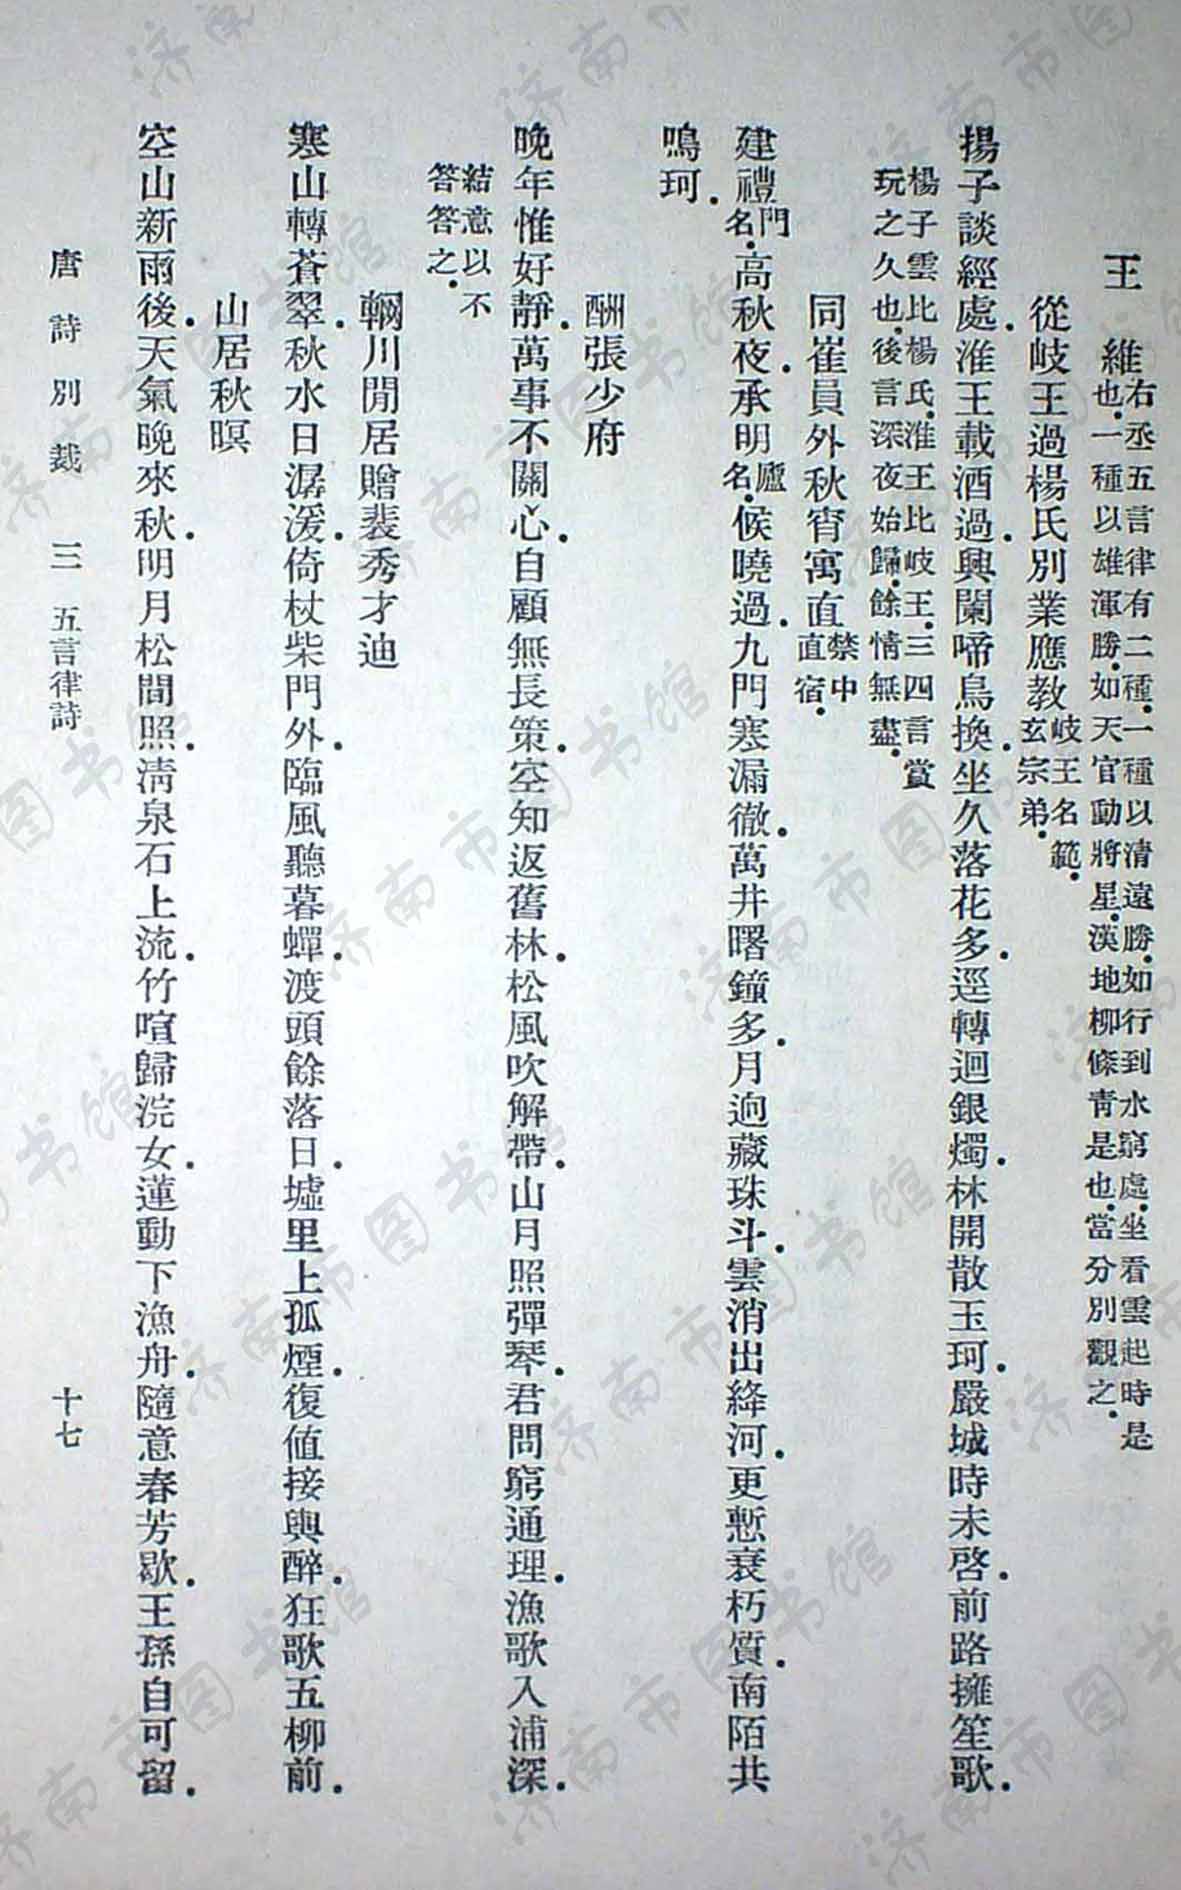 王維右丞五言律有二種.一種以清遠勝.如行到水窮處.坐看雲起時是
也.一種以雄渾勝.如天官動將星.漢地柳條青是也.當分別觀之.
從岐王過楊氏別業應教岐王名範.
玄宗弟.
揚子談經處.淮王載酒過.興闌啼鳥換.坐久落花多.逕轉迴銀燭.林開散玉珂.嚴城時未啓.前路擁笙歌.
楊子雲比楊氏.淮王比岐王.三四言賞
玩之久也.後言深夜始歸.餘情無盡.
同崔員外秋宵寓直禁中
直宿.
建禮門
名.高秋夜.承明廬
名.候曉過.九門寒漏徹.萬井曙鐘多.月迥藏珠斗.雲消出絳河.更慙衰朽質.南陌共
鳴珂.
酬張少府
晚年惟好靜.萬事不關心.自顧無長策.空知返舊林.松風吹解帶.山月照彈琴.君問窮通理.漁歌入浦深.
結意以不
答答之.
輞川閒居贈裴秀才迪
寒山轉蒼翠.秋水日潺湲.倚杖柴門外.臨風聽暮蟬.渡頭餘落日.墟里上孤煙.復值接輿醉.狂歌五柳前.
山居秋暝
空山新雨後.天氣晚來秋.明月松間照.清泉石上流.竹喧歸浣女.蓮動下漁舟.隨意春芳歇.王孫自可留.
唐詩別裁 三 五言律詩 十七
济南市图书馆